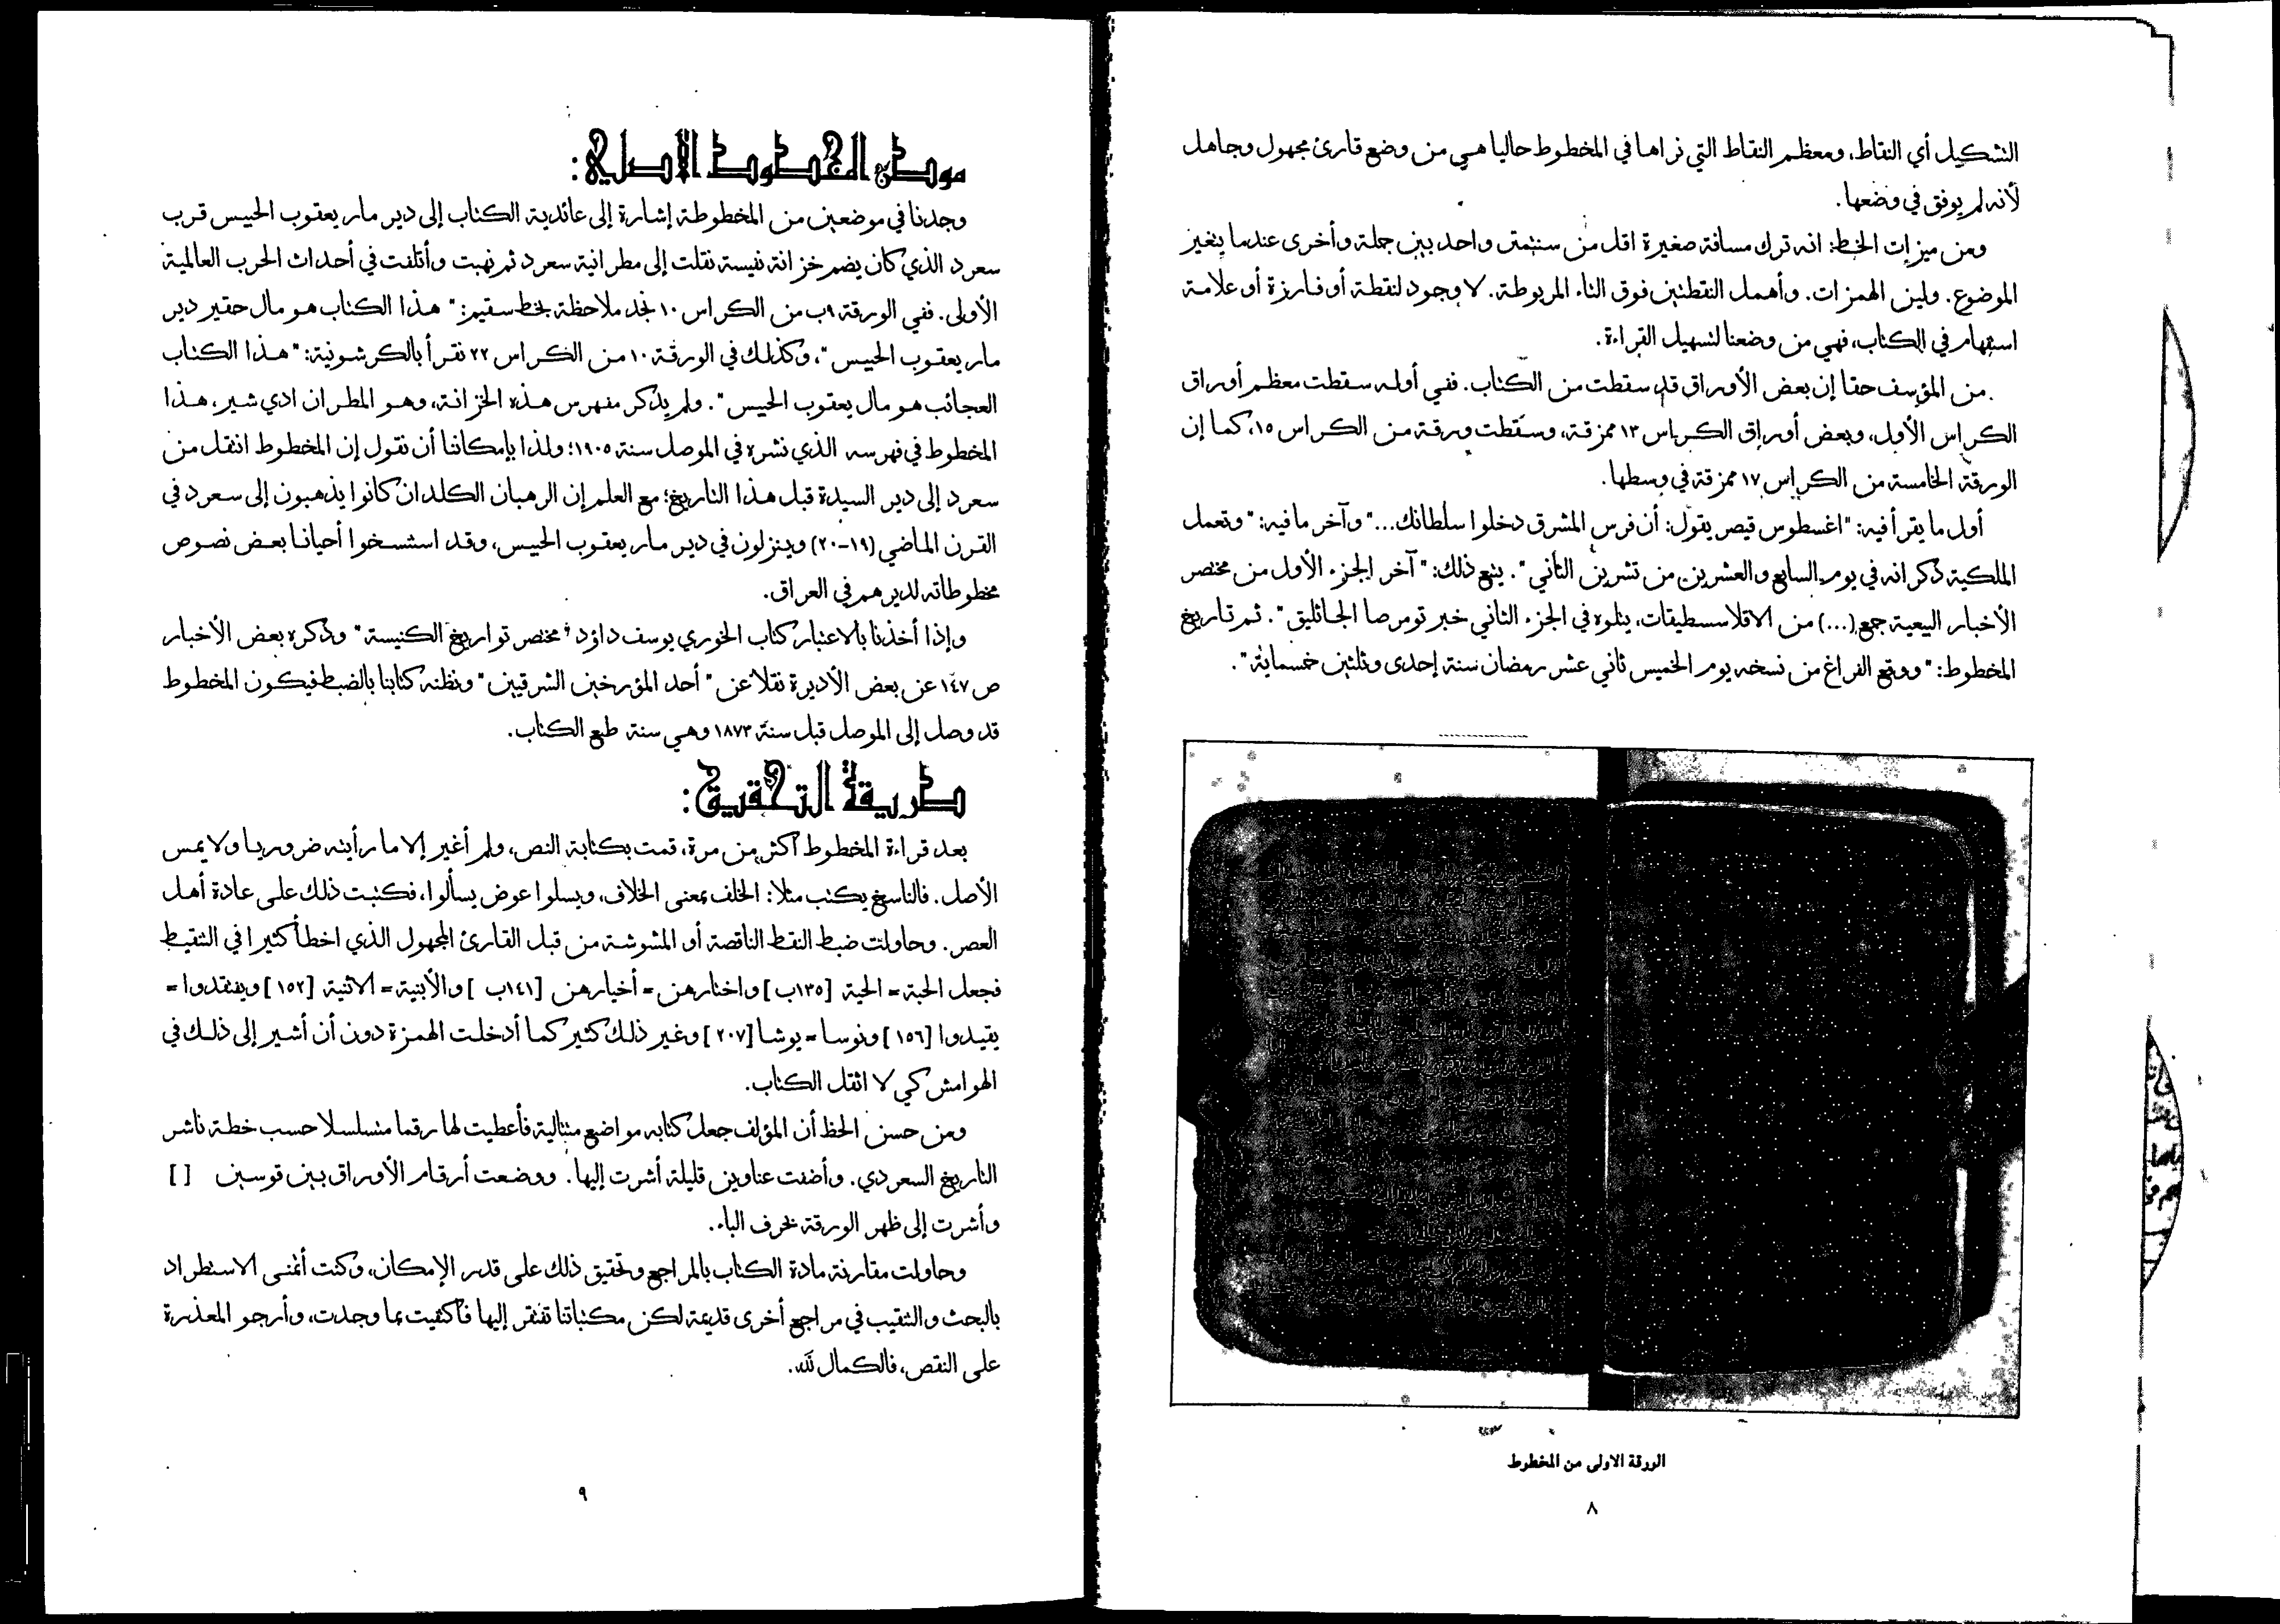 التشكيل أي النقاط، ومعظم النقاط التي نراها في المخطوط حاليا هي من وضع قارئ مجهول وجاهل
لأنه لم يوفق في وضعها.
ومن ميزات الخط: انه ترك مسافة صغيرة اقل من سنتمتر واحد بين جملة وأخرى عندما يتغير
الموضوع. ولين الهمزات. وأهمل النقطتين فوق التاء المربوطة. لا وجود لنقطة أو فارزة أو علامة
استفهام في الكتاب، فهي من وضعنا لتسهيل القراءة.
من المؤسف حقا إن بعض الأوراق قد سقطت من الكتاب. ففي أوله سقطت معظم أوراق
الكراس الأول، وبعض أوراق الكراس ١٣ ممزقة، وسقطت ورقة من الكراس ١٥، كما إن
الورقة الخامسة من الكراس ١٧ ممزقة في وسطها.
أول ما يقرأ فيه: "اغسطوس قيصر يقول: أن فرس المشرق دخلوا سلطانك..." وآخر ما فيه: "وتعمل
الملكية ذكرانه في يوم السابع والعشرين من تشرين الثاني". يتبع ذلك: "آخر الجزء الأول من مختصر
الأخبار البيعية جمع (...) من الاقلاسسطيقات، يتلوه في الجزء الثاني خبر تومرصا الجاثليق". ثم تاريخ
المخطوط: "ووقع الفراغ من نسخه يوم الخميس ثاني عشر رمضان سنة إحدى وثلثين خمسماية".
الورقة الاولى من المخطوط
٨
موطن المخطوط الأصلي:
وجدنا في موضعين من المخطوطة إشارة إلى عائدية الكتاب إلى دير مار يعقوب الحبيس قرب
سعرد الذي كان يضم خزانة نفيسة نقلت إلى مطرانية سعرد ثم نهبت وأتلفت في أحداث الحرب العالمية
الأولى. ففي الورقة ٩ب من الكراس ١٠ نجد ملاحظة بخط سقيم: "هذا الكتاب هو مال حقير دير
مار يعقوب الحبيس"، وكذلك في الورقة ١٠ من الكراس ٢٢ نقرأ بالكرشونية: "هذا الكتاب
العجائب هو مال يعقوب الحبيس". ولم يذكر مفهرس هذه الخزانة، وهو المطران ادي شير، هذا
المخطوط في فهرسه الذي نشره في الموصل سنة ١٩٠٥؛ ولذا بإمكاننا أن نقول إن المخطوط انتقل من
سعرد إلى دير السيدة قبل هذا التاريخ؛ مع العلم إن الرهبان الكلدان كانوا يذهبون إلى سعرد في
القرن الماضي (١٩-٢٠) وينزلون في دير مار يعقوب الحبيس، وقد استنسخوا أحيانا بعض نصوص
مخطوطاته لديرهم في العراق.
وإذا أخذنا بالاعتبار كتاب الخوري يوسف داؤد "مختصر تواريخ الكنيسة" وذكره بعض الأخبار
ص ١٤٧ عن بعض الأديرة نقلا عن "أحد المؤرخين الشرقيين" ونظنه كتابنا بالضبط فيكون المخطوط
قد وصل إلى الموصل قبل سنة ١٨٧٣ وهي سنة طبع الكتاب.
طريقة التحقيق:
بعد قراءة المخطوط أكثر من مرة، قمت بكتابة النص، ولم أغير إلا ما رأيته ضروريا ولا يمس
الأصل. فالناسخ يكتب مثلا: الخلف بمعنى الخلاف، ويسلوا عوض يسألوا، فكتبت ذلك على عادة أهل
العصر. وحاولت ضبط النقط الناقصة أو المشوشة من قبل القارئ المجهول الذي اخطأ كثيرا في التنقيط
فجعل الحبة= الحية [١٣٥ب] واختارهن= أخيارهن [١٤١ب ] والأبنية= الاثنية [١٥٢] ويفتقدوا=
يقيدوا [١٥٦] ونوسا= يوشا [٢٠٧] وغير ذلك كثير كما أدخلت الهمزة دون أن أشير إلى ذلك في
الهوامش كي لا اثقل الكتاب.
ومن حسن الحظ أن المؤلف جعل كتابه مواضع متتالية فأعطيت لها رقما متسلسلا حسب خطة ناشر
التاريخ السعردي. وأضفت عناوين قليلة أشرت إليها. ووضعت أرقام الأوراق بين قوسين [ ]
وأشرت إلى ظهر الورقة بحرف الباء.
وحاولت مقارنة مادة الكتاب بالمراجع وتحقيق ذلك على قدر الإمكان، وكنت أتمنى الاستطراد
بالبحث والتنقيب في مراجع أخرى قديمة لكن مكتباتنا تفتقر إليها فاكتفيت بما وجدت، وأرجو المعذرة
على النقص، فالكمال لله.
٩